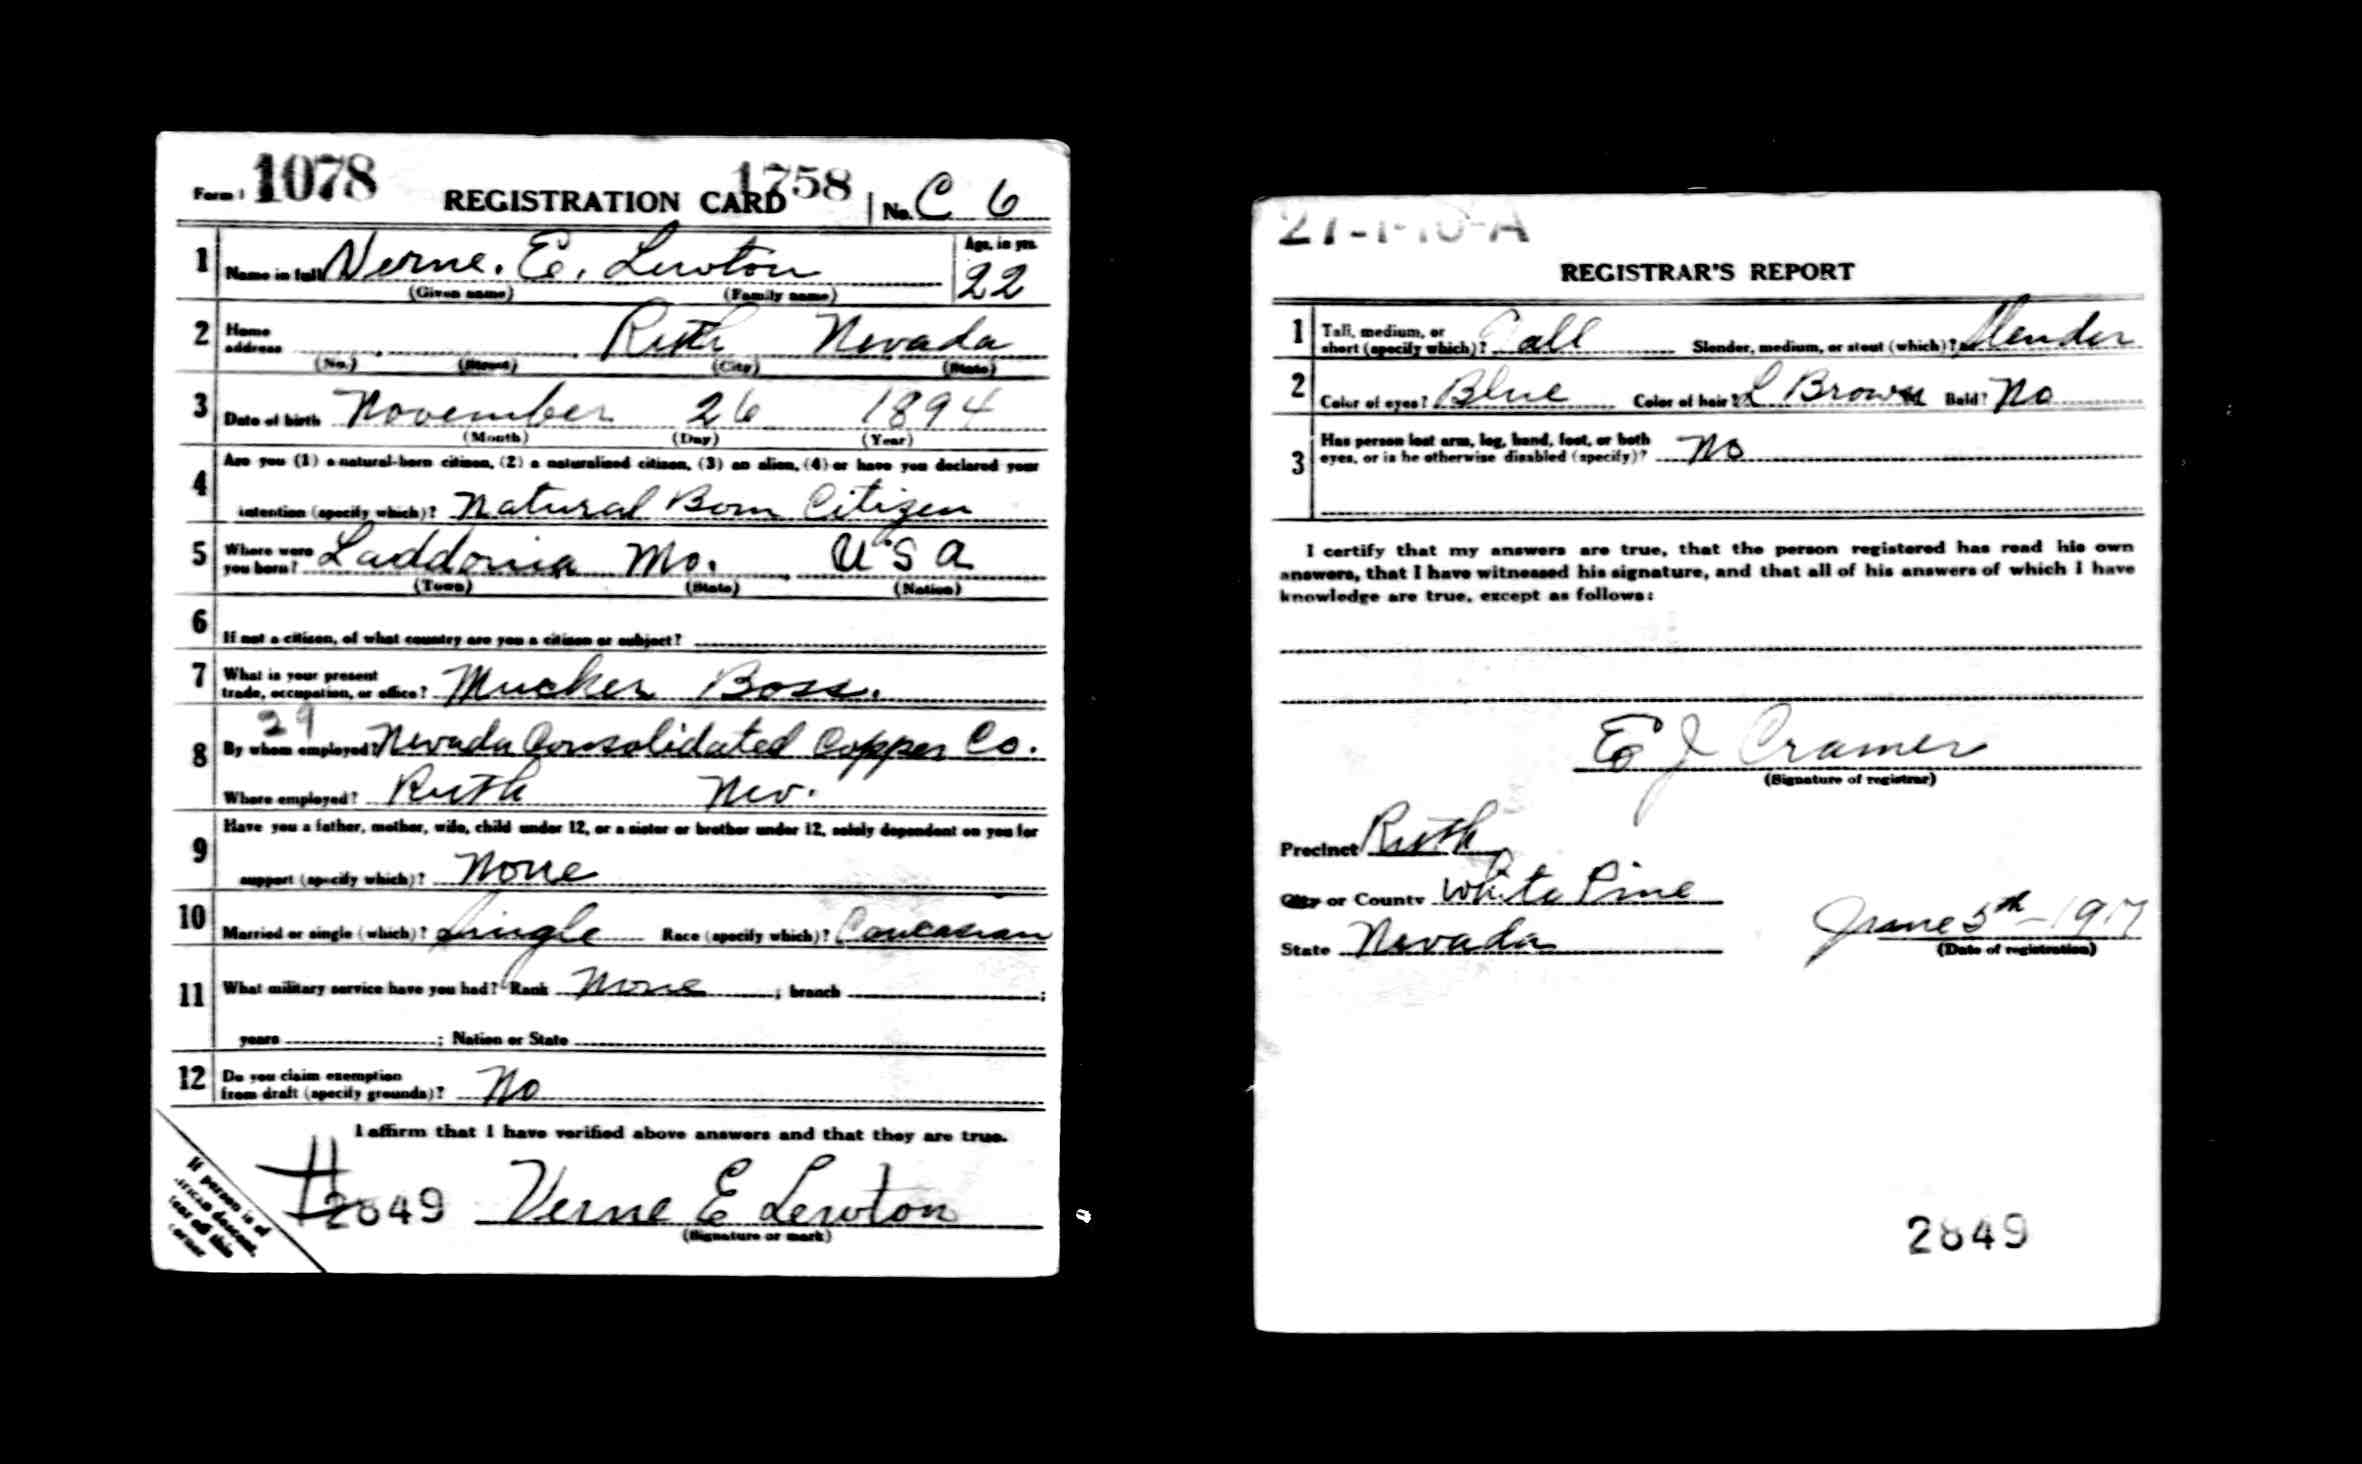 Form 1 1078 REGISTRATION CARD 1758 No. C 6
1 Name in full Verne. E. Lewton Age, in yrs. 22
(Given name) (Family name)
2 Home address Ruth Nevada
(No.) (Street) (City) (State)
3 Date of birth November 26 1894
(Month) (Day) (Year)
4 Are you (1) a natural-born citizen, (2) a naturalized citizen, (3) an alien, (4) or have you declared your
intention (specify which)? Natural Born Citizen
5 Where were you born? Laddonia Mo. U S A
(Town) (State) (Nation)
6 If not a citizen, of what country are you a citizen or subject?
7 What is your present
trade, occupation, or office? Mucker Boss.
29
8 By whom employed? Nevada Consolidated Copper Co.
Where employed? Ruth Nev.
9 Have you a father, mother, wife, child under 12, or a sister or brother under 12, solely dependent on you for
support (specify which)? None
10 Married or single (which)? Single Race (specify which)? Caucasian
11 What military service have you had? Rank None ; branch ;
years ; Nation or State
12 Do you claim exemption
from draft (specify grounds)? No
I affirm that I have verified above answers and that they are true.
#2849 Verne E Lewton
(Signature or mark)
If person is of
African descent,
tear off this
corner
27-1-10-A
REGISTRAR'S REPORT
1 Tall, medium, or
short (specify which)? Tall Slender, medium, or stout (which)? Slender
2 Color of eyes? Blue Color of hair? L Brown Bald? No
3 Has person lost arm, leg, hand, foot, or both
eyes, or is he otherwise disabled (specify)? No
I certify that my answers are true, that the person registered has read his own
answers, that I have witnessed his signature, and that all of his answers of which I have
knowledge are true, except as follows:
E J Cramer
(Signature of registrar)
Precinct Ruth
City or County White Pine
State Nevada June 5th-1917
(Date of registration)
2849